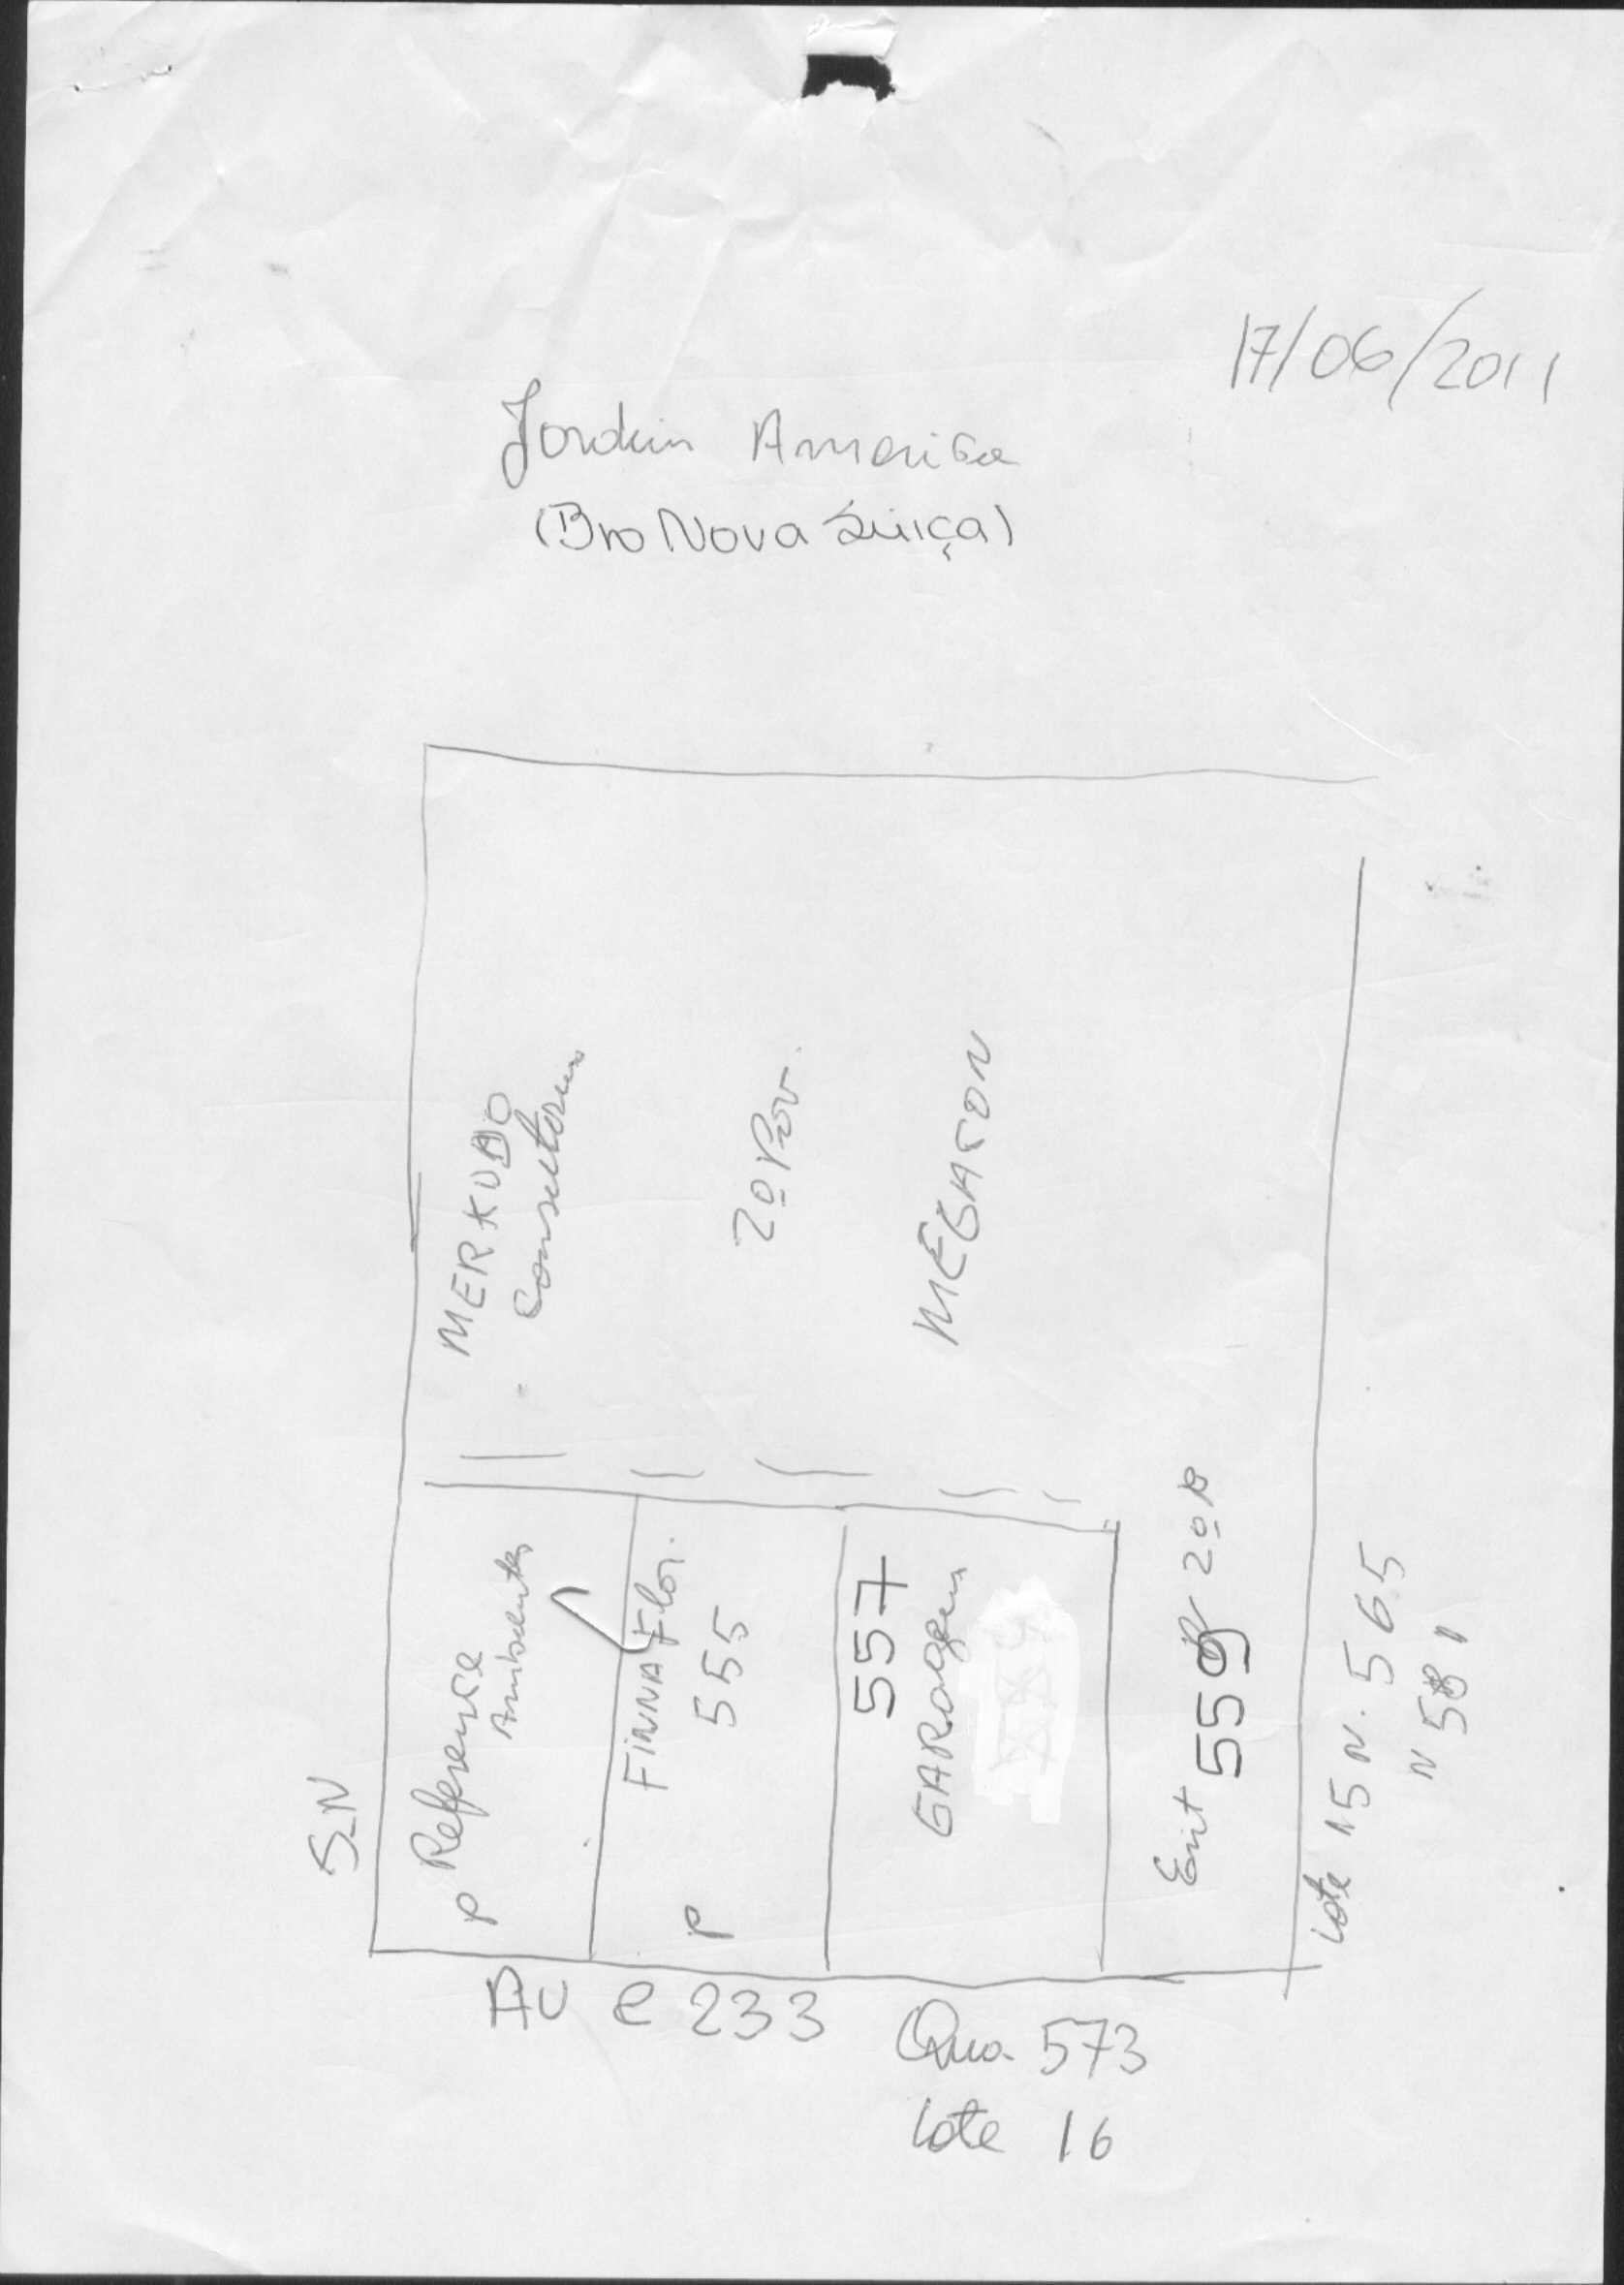 17/06/2011
Jardim America
(Bro Nova Suiça)
MERKUDO
Consultoria
2º Pav.
MEGATON
S-N
P Reference
Ambientes
FINNA Flor.
P 555
557
GARAgem
Ent 559 2º P
Lote 15 N. 565
N 581
Av C 233
Qua. 573
Lote 16